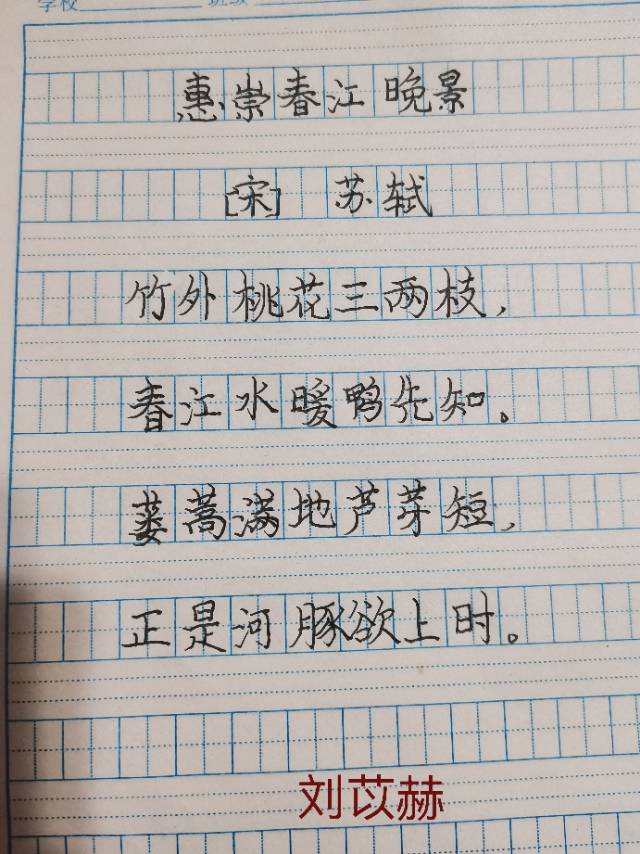 学校 班级
惠崇春江晚景
[宋] 苏轼
竹外桃花三两枝，
春江水暖鸭先知。
蒌蒿满地芦芽短，
正是河豚欲上时。
刘苡赫